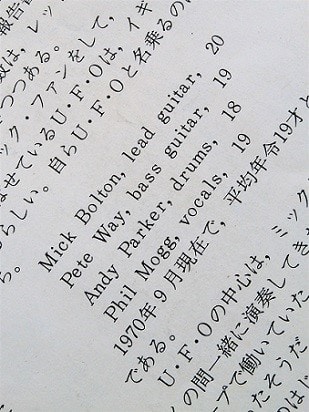 報告書
数は，レッ
つつある。
ック・ファンをして，イギ
ませているU・F・Oは，
らしい。自らU・F・Oと名乗るの
ち。
Mick Bolton, lead guitar, 20
Pete Way, bass guitar, 19
Andy Parker, drums, 18
Phil Mogg, vocals, 19
1970年9月現在で，平均年令19才と
である。
U・F・Oの中心は，ミック
の間一緒に演奏してき
ープで働いていた
たそうだ
はじ